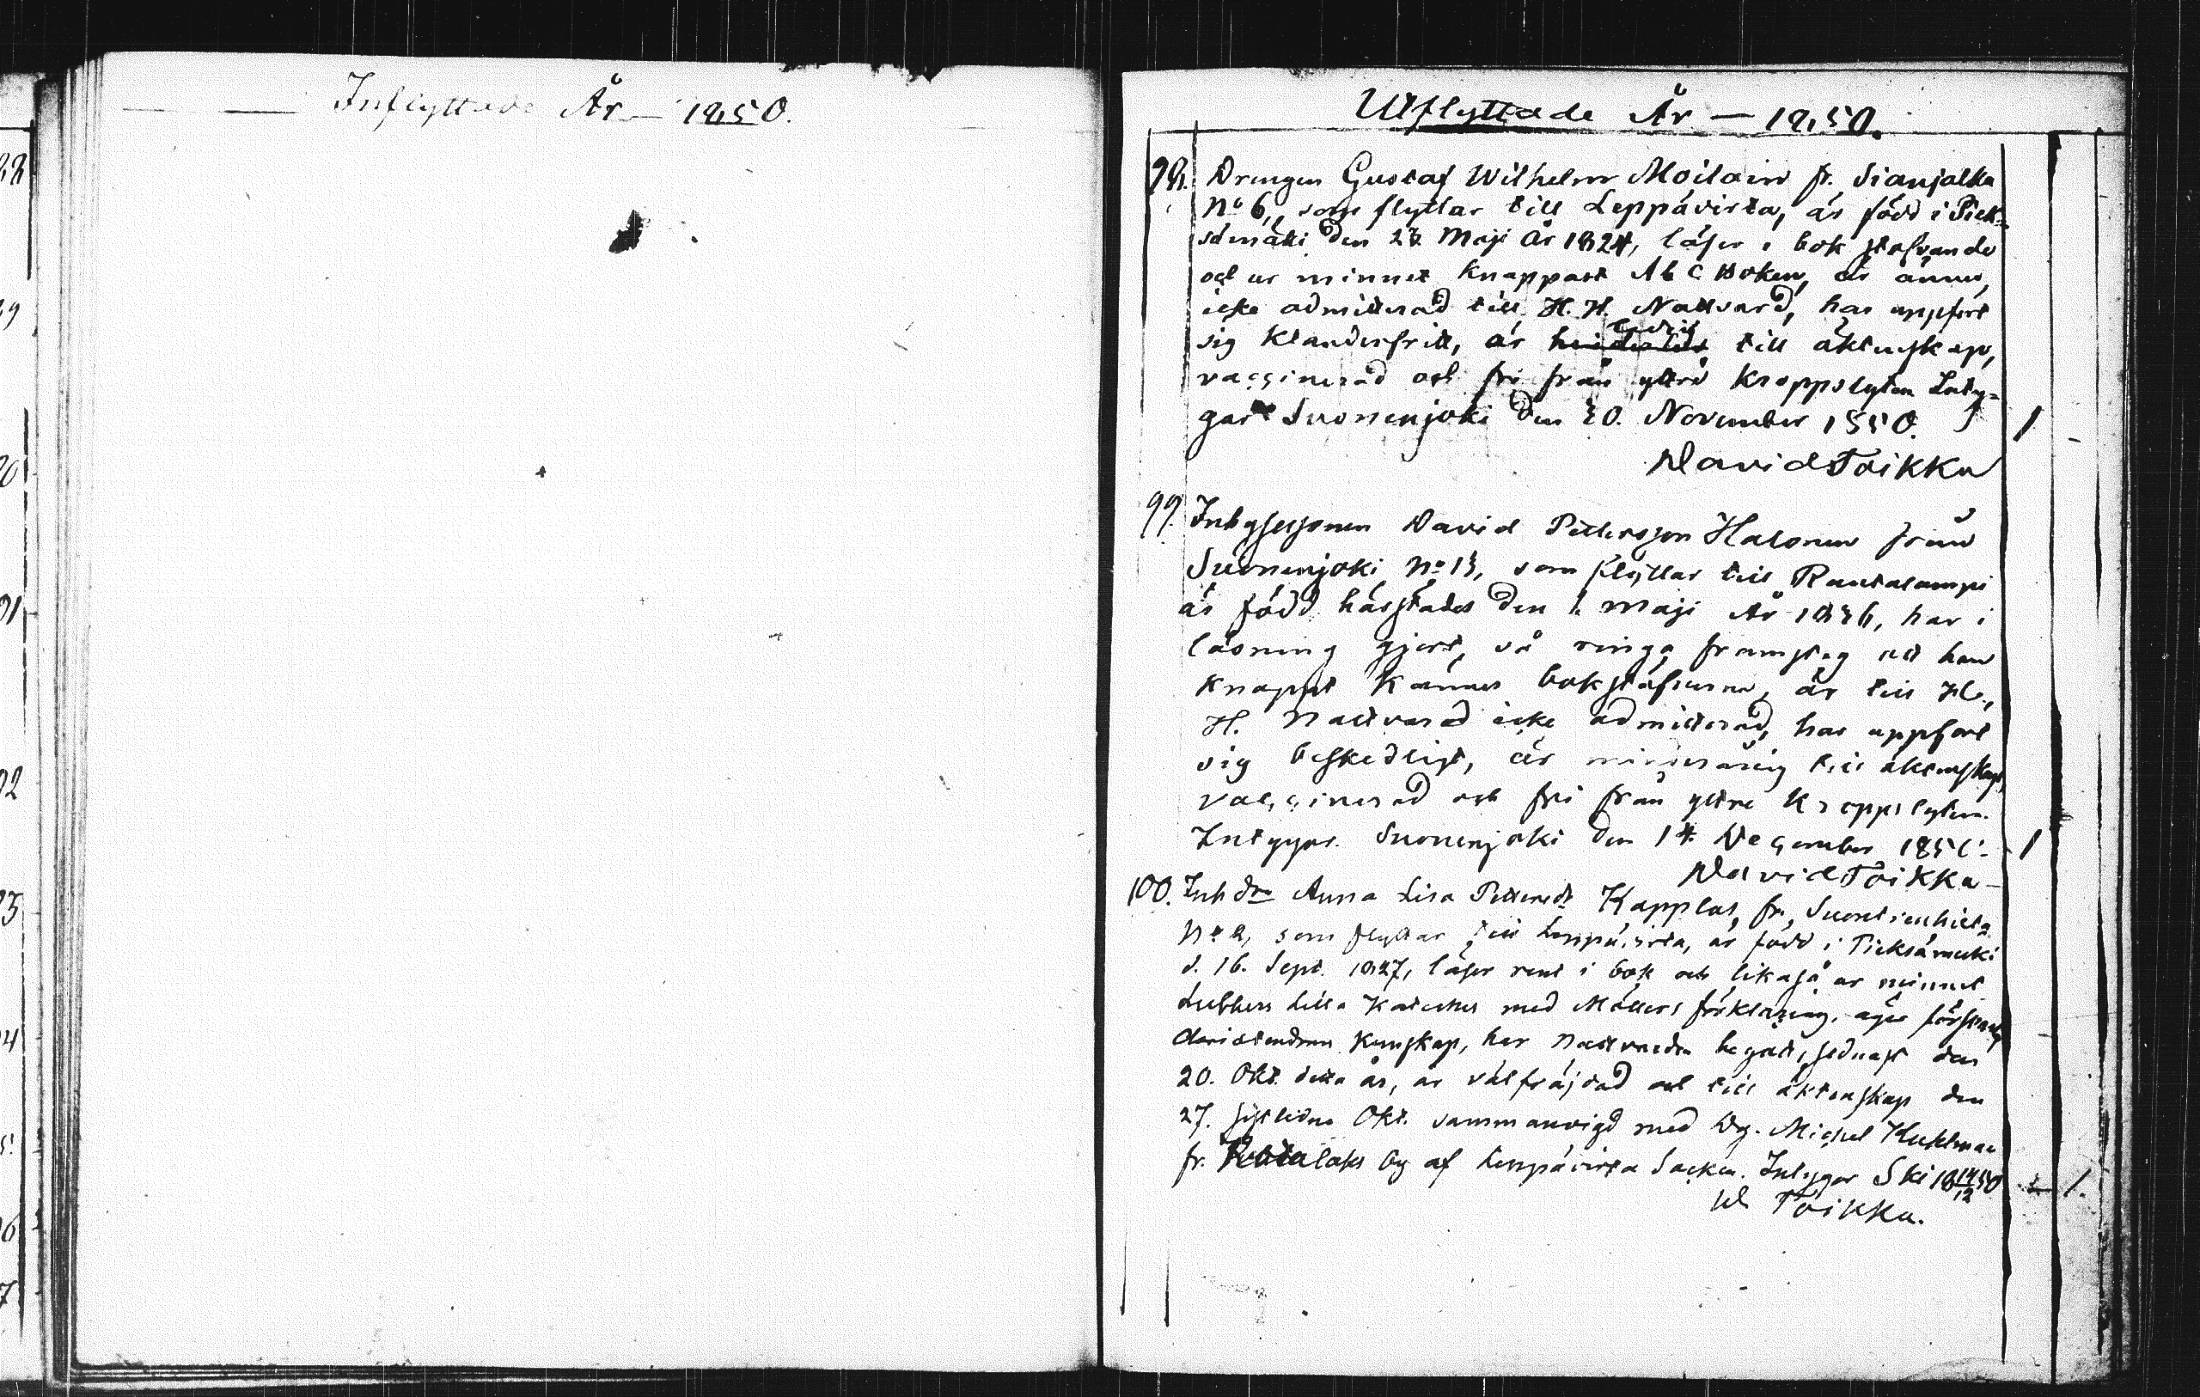 Inflyttade År 1850.
Utflyttade År 1850.
98. Drengen Gustaf Wilhelm Moilain fr. Sianjalka
No 6, som flyttar till Leppävirta, är född i Piek-
sämäki den Maji år 1824, läser i bok stafvande
och ur minnet knappast A b c Boken, är ännu
icke admitterad till H. H. Nattvard, har uppfört
sig klanderfritt, är ledig till äktenskap,
vaccinerad och fri från yttre kroppslyten Inty-
gar Suonenjoki den 20. November 1850. 1
David Toikka
99. Inhysessonen David Pettersson Halonen från
Suonenjoki No 13, som flyttar till Rautalampi
är född härstädes den 1. Maji År 1836, har i
läsning gjort så ringa framsteg att han
knappt känner bokstäfverna, är till H.
H. Nattvard icke admitterad, har uppfört
sig beskedligt, är minderårig till äktenskap,
vaccinerad och fri från yttre kroppslyten.
Intygar Suonenjoki den 14 December 1850. 1
David Toikka
100. Inh dr Anna Lisa Pettersdr Kapplas, fr.
No 2, som flyttar till Leppävirta, är född i Pieksämäki
d. 16. Sept. 1827, läser rent i bok och likaså ur minnet
Lutheri Lilla Kateches med Möllers förklaring, äger försvarlig
Christendoms kunskap, har Nattvarden begått sednast den
20. Okt. detta år, är välfräjdad och till äktenskap den
27. sistledne Okt. sammanvigd med Drg. Michel Kuhlman
fr. by af Leppävirta Socken. Intygar Ski 18 14/12 50 1.
D Toikka.